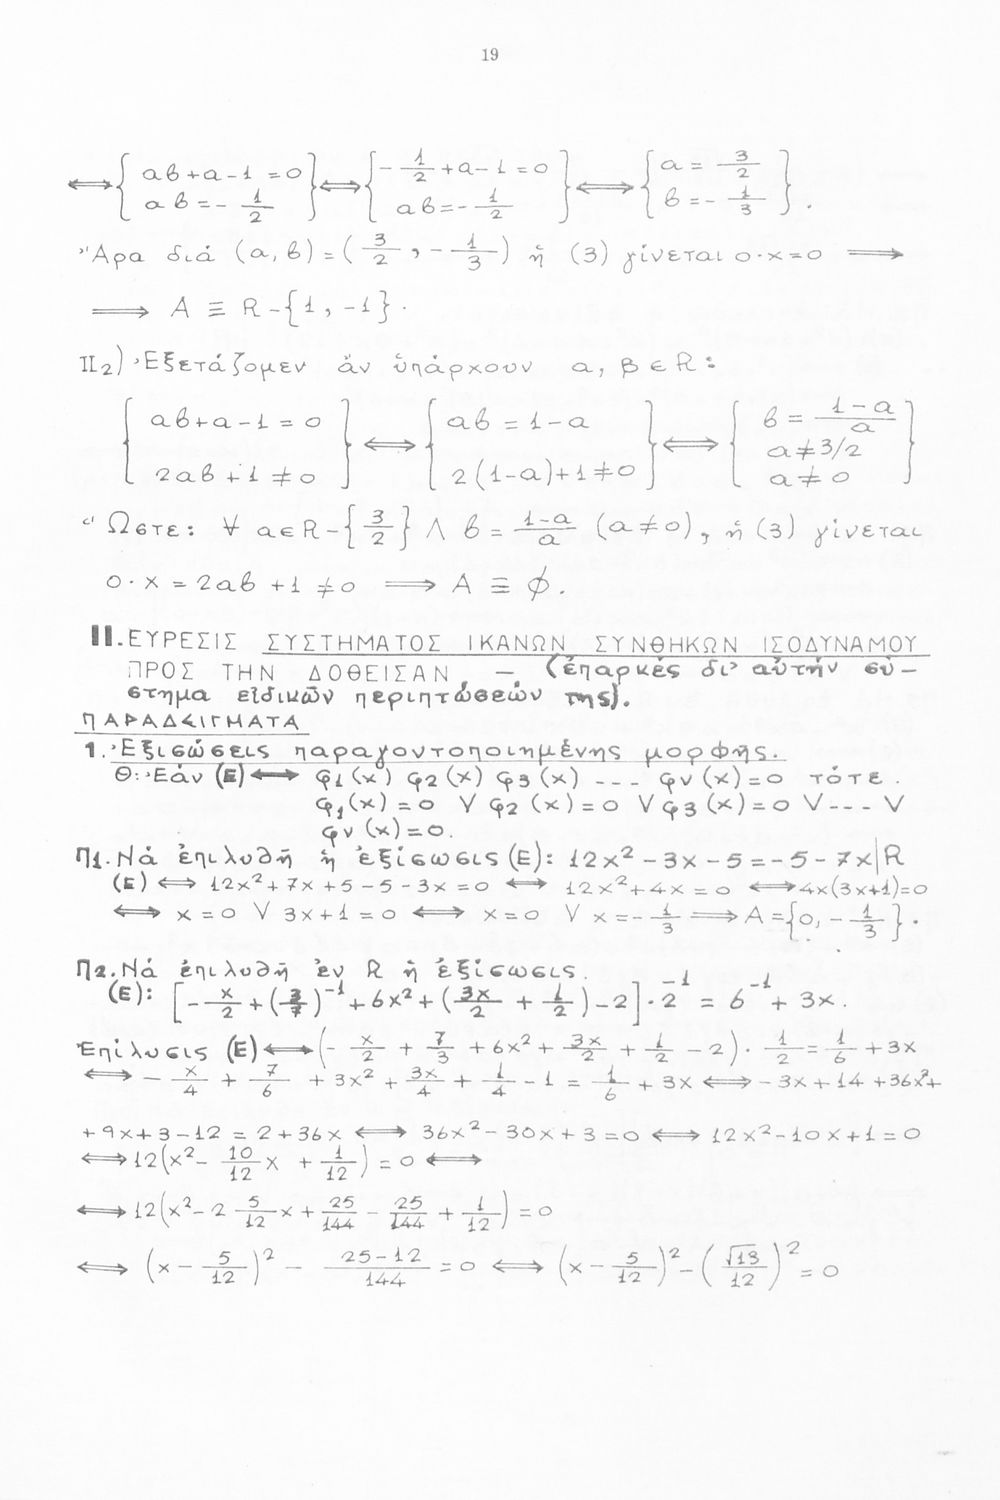 19
⟺ { αβ+α-1 = 0, αβ = -1/2 } ⟺ { -1/2 + α - 1 = 0, αβ = -1/2 } ⟺ { α = 3/2, β = -1/3 }.
Ἄρα διά (α, β) = (3/2, -1/3) ἡ (3) γίνεται 0·x=0 ⟹
⟹ A ≡ R-{1, -1}.
Π₂) Ἐξετάζομεν ἄν ὑπάρχουν α, β ∈ R:
{ αβ+α-1 = 0, 2αβ+1 ≠ 0 } ⟺ { αβ = 1-α, 2(1-α)+1 ≠ 0 } ⟺ { β = (1-α)/α, α ≠ 3/2, α ≠ 0 }
Ὥστε: ∀ α∈R-{3/2} Λ β = (1-α)/α (α ≠ 0), ἡ (3) γίνεται
0·x = 2αβ+1 ≠ 0 ⟹ A ≡ ∅.
II. ΕΥΡΕΣΙΣ ΣΥΣΤΗΜΑΤΟΣ ΙΚΑΝΩΝ ΣΥΝΘΗΚΩΝ ΙΣΟΔΥΝΑΜΟΥ
ΠΡΟΣ ΤΗΝ ΔΟΘΕΙΣΑΝ, — (ἐπαρκές δι' αὐτήν σύ-
στημα εἰδικῶν περιπτώσεών της).
ΠΑΡΑΔΕΙΓΜΑΤΑ
1. Ἐξισώσεις παραγοντοποιημένης μορφῆς.
Θ: Ἐάν (Ε) ⟺ φ₁(x) φ₂(x) φ₃(x) --- φν(x)=0 τότε.
φ₁(x)=0 V φ₂(x)=0 V φ₃(x)=0 V --- V
φν(x)=0.
Π1. Νά ἐπιλυθῆ ἡ ἐξίσωσις (Ε): 12x²-3x-5=-5-7x|R
(Ε) ⟺ 12x²+7x+5-5-3x=0 ⟺ 12x²+4x=0 ⟺ 4x(3x+1)=0
⟺ x=0 V 3x+1=0 ⟺ x=0 V x=-1/3 ⟹ A={0, -1/3}.
Π2. Νά ἐπιλυθῆ ἐν R ἡ ἐξίσωσις.
(Ε): [-x/2 + (3/7)⁻¹ + 6x² + (3x/2 + 1/2) - 2]·2⁻¹ = 6⁻¹ + 3x.
Ἐπίλυσις (Ε) ⟺ (-x/2 + 7/3 + 6x² + 3x/2 + 1/2 - 2)·1/2 = 1/6 + 3x
⟺ -x/4 + 7/6 + 3x² + 3x/4 + 1/4 - 1 = 1/6 + 3x ⟺ -3x+14+36x²+
+9x+3-12 = 2+36x ⟺ 36x²-30x+3=0 ⟺ 12x²-10x+1=0
⟺ 12(x² - 10/12 x + 1/12) = 0 ⟺
⟺ 12(x² - 2 5/12 x + 25/144 - 25/144 + 1/12) = 0
⟺ (x - 5/12)² - (25-12)/144 = 0 ⟺ (x - 5/12)² - (√13/12)² = 0